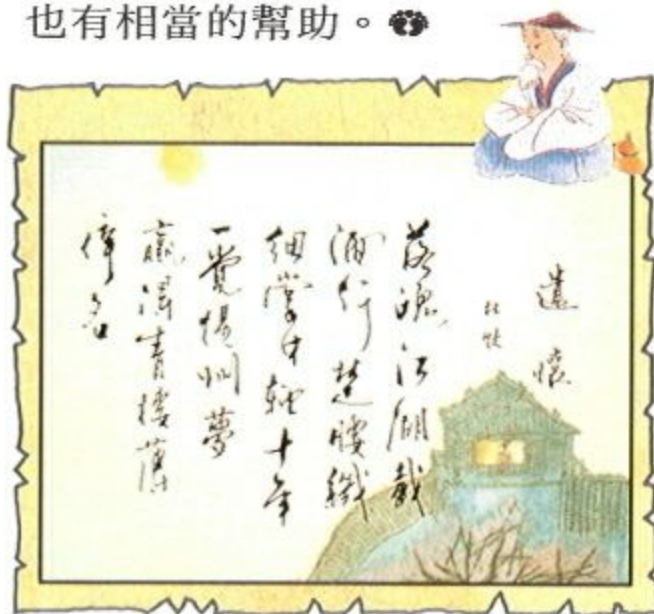 也有相當的幫助。
遣懷
杜牧
落魄江湖載
酒行楚腰纖
細掌中輕十年
一覺揚州夢
贏得青樓薄
倖名